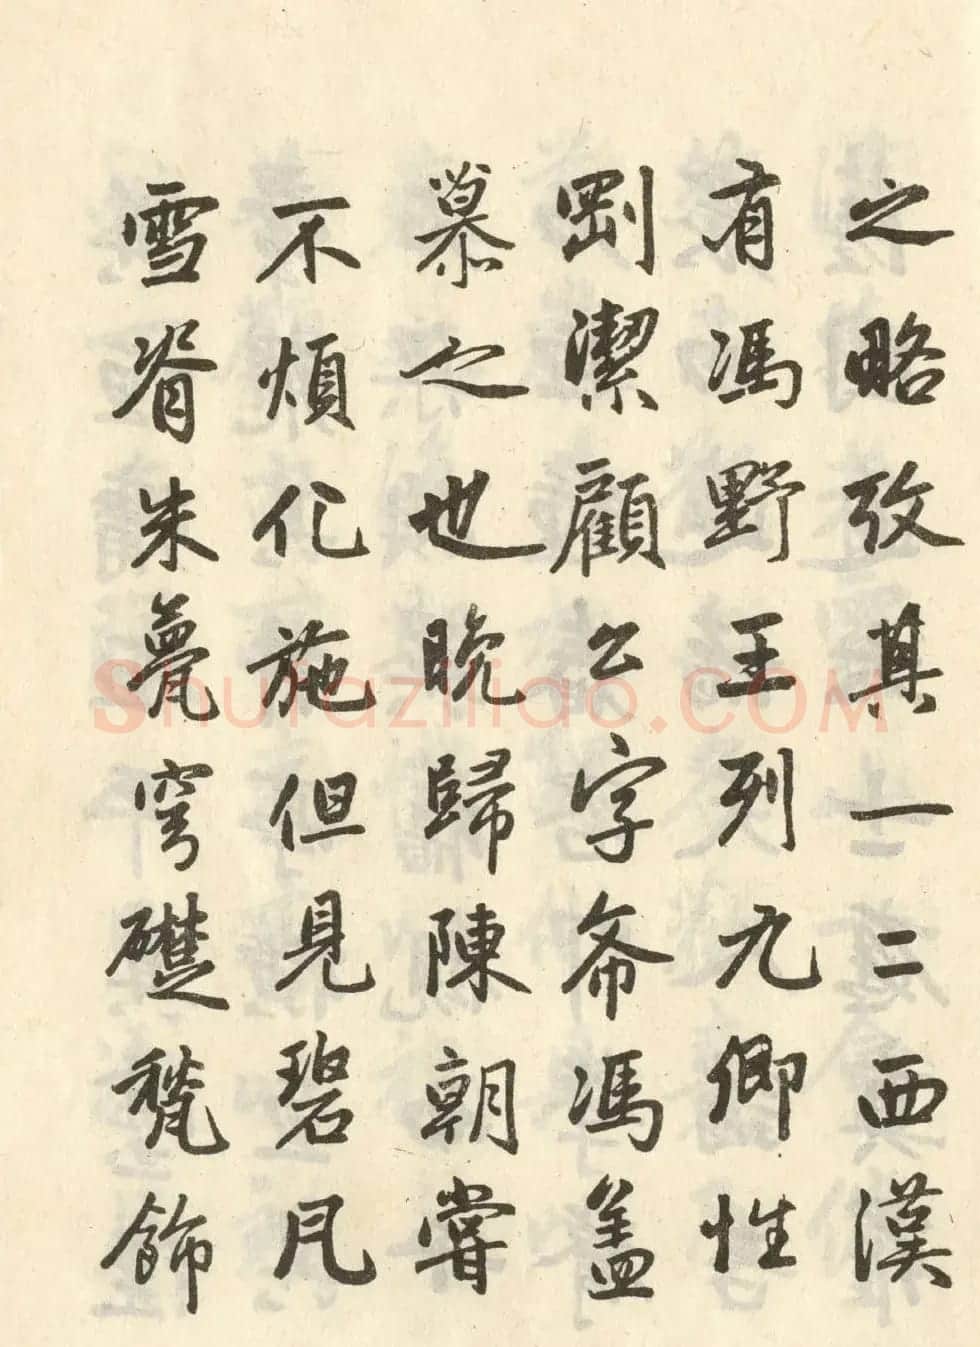 之略攷其一二西漢
有馮野王列九卿性
剛潔顧公字希馮盖
慕之也晚歸陳朝嘗
不煩化施但見碧瓦
雪脊朱甍穹礎甃飾
Shufaziliao.COM